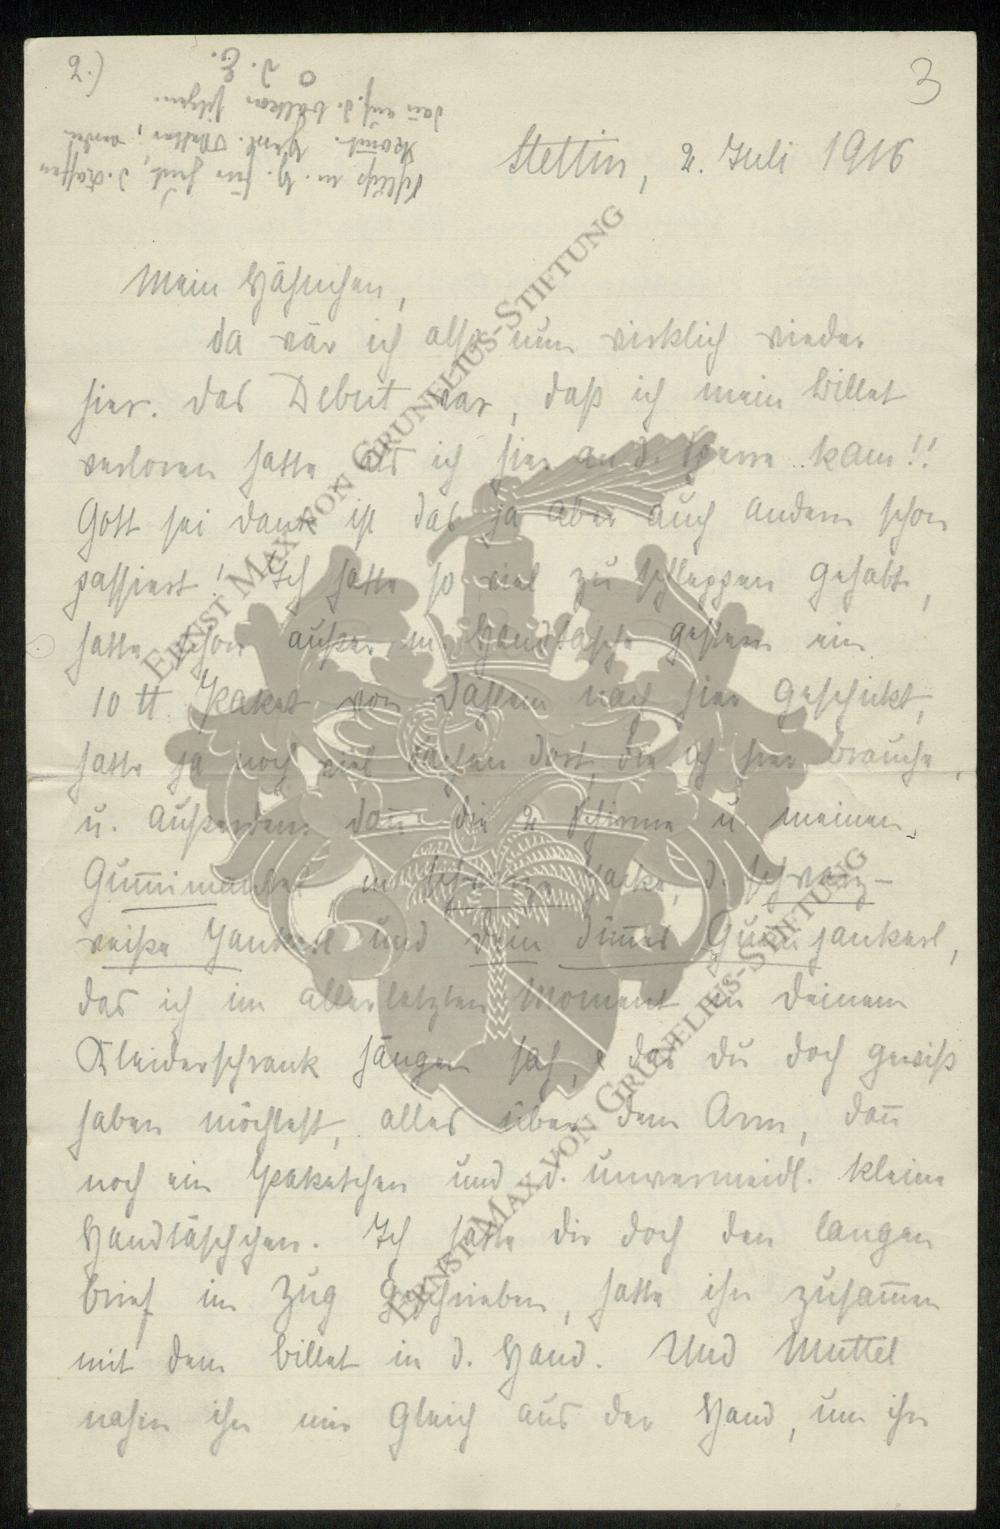 2.)
3
Stettin, 2. Juli 1916
Mein Hähnchen,
da wär ich also nun wirklich wieder
hier. Das Debut war, daß ich mein Billet
verloren hatte als ich hier an d. Sperre kam!!
Gott sei dank ist das ja aber auch andern schon
passiert! Ich hatte so viel zu schleppen gehabt,
hatte schon außer m. Handtasche gestern ein
10 ℔ Paket von Dahlem nach hier geschickt,
hatte ja noch viel Sachen dort, die ich hier brauche,
u. außerdem dann die 2 Schirme u. meinen
Gummimantel, m. schwarze Jacke, d. schwarz-
weiße Jankerl und Dein Jankerl,
das ich im allerletzten Moment in Deinem
Kleiderschrank hängen sah, das du doch gewiß
haben möchtest, alles über dem Arm, dann
noch ein Paketchen und d. unvermeidl. kleine
Handtäschchen. Ich hatte dir doch den langen
Brief im Zug geschrieben, hatte ihn zusammen
mit dem Billet in d. Hand. Und Muttel
nahm ihn mir gleich aus der Hand, um ihn
Schluß m. G. für heut, d.
dann auf d. Balkon sitzen.
D. E.
ERNST MAX VON GRUNELIUS-STIFTUNG
ERNST MAX VON GRUNELIUS-STIFTUNG